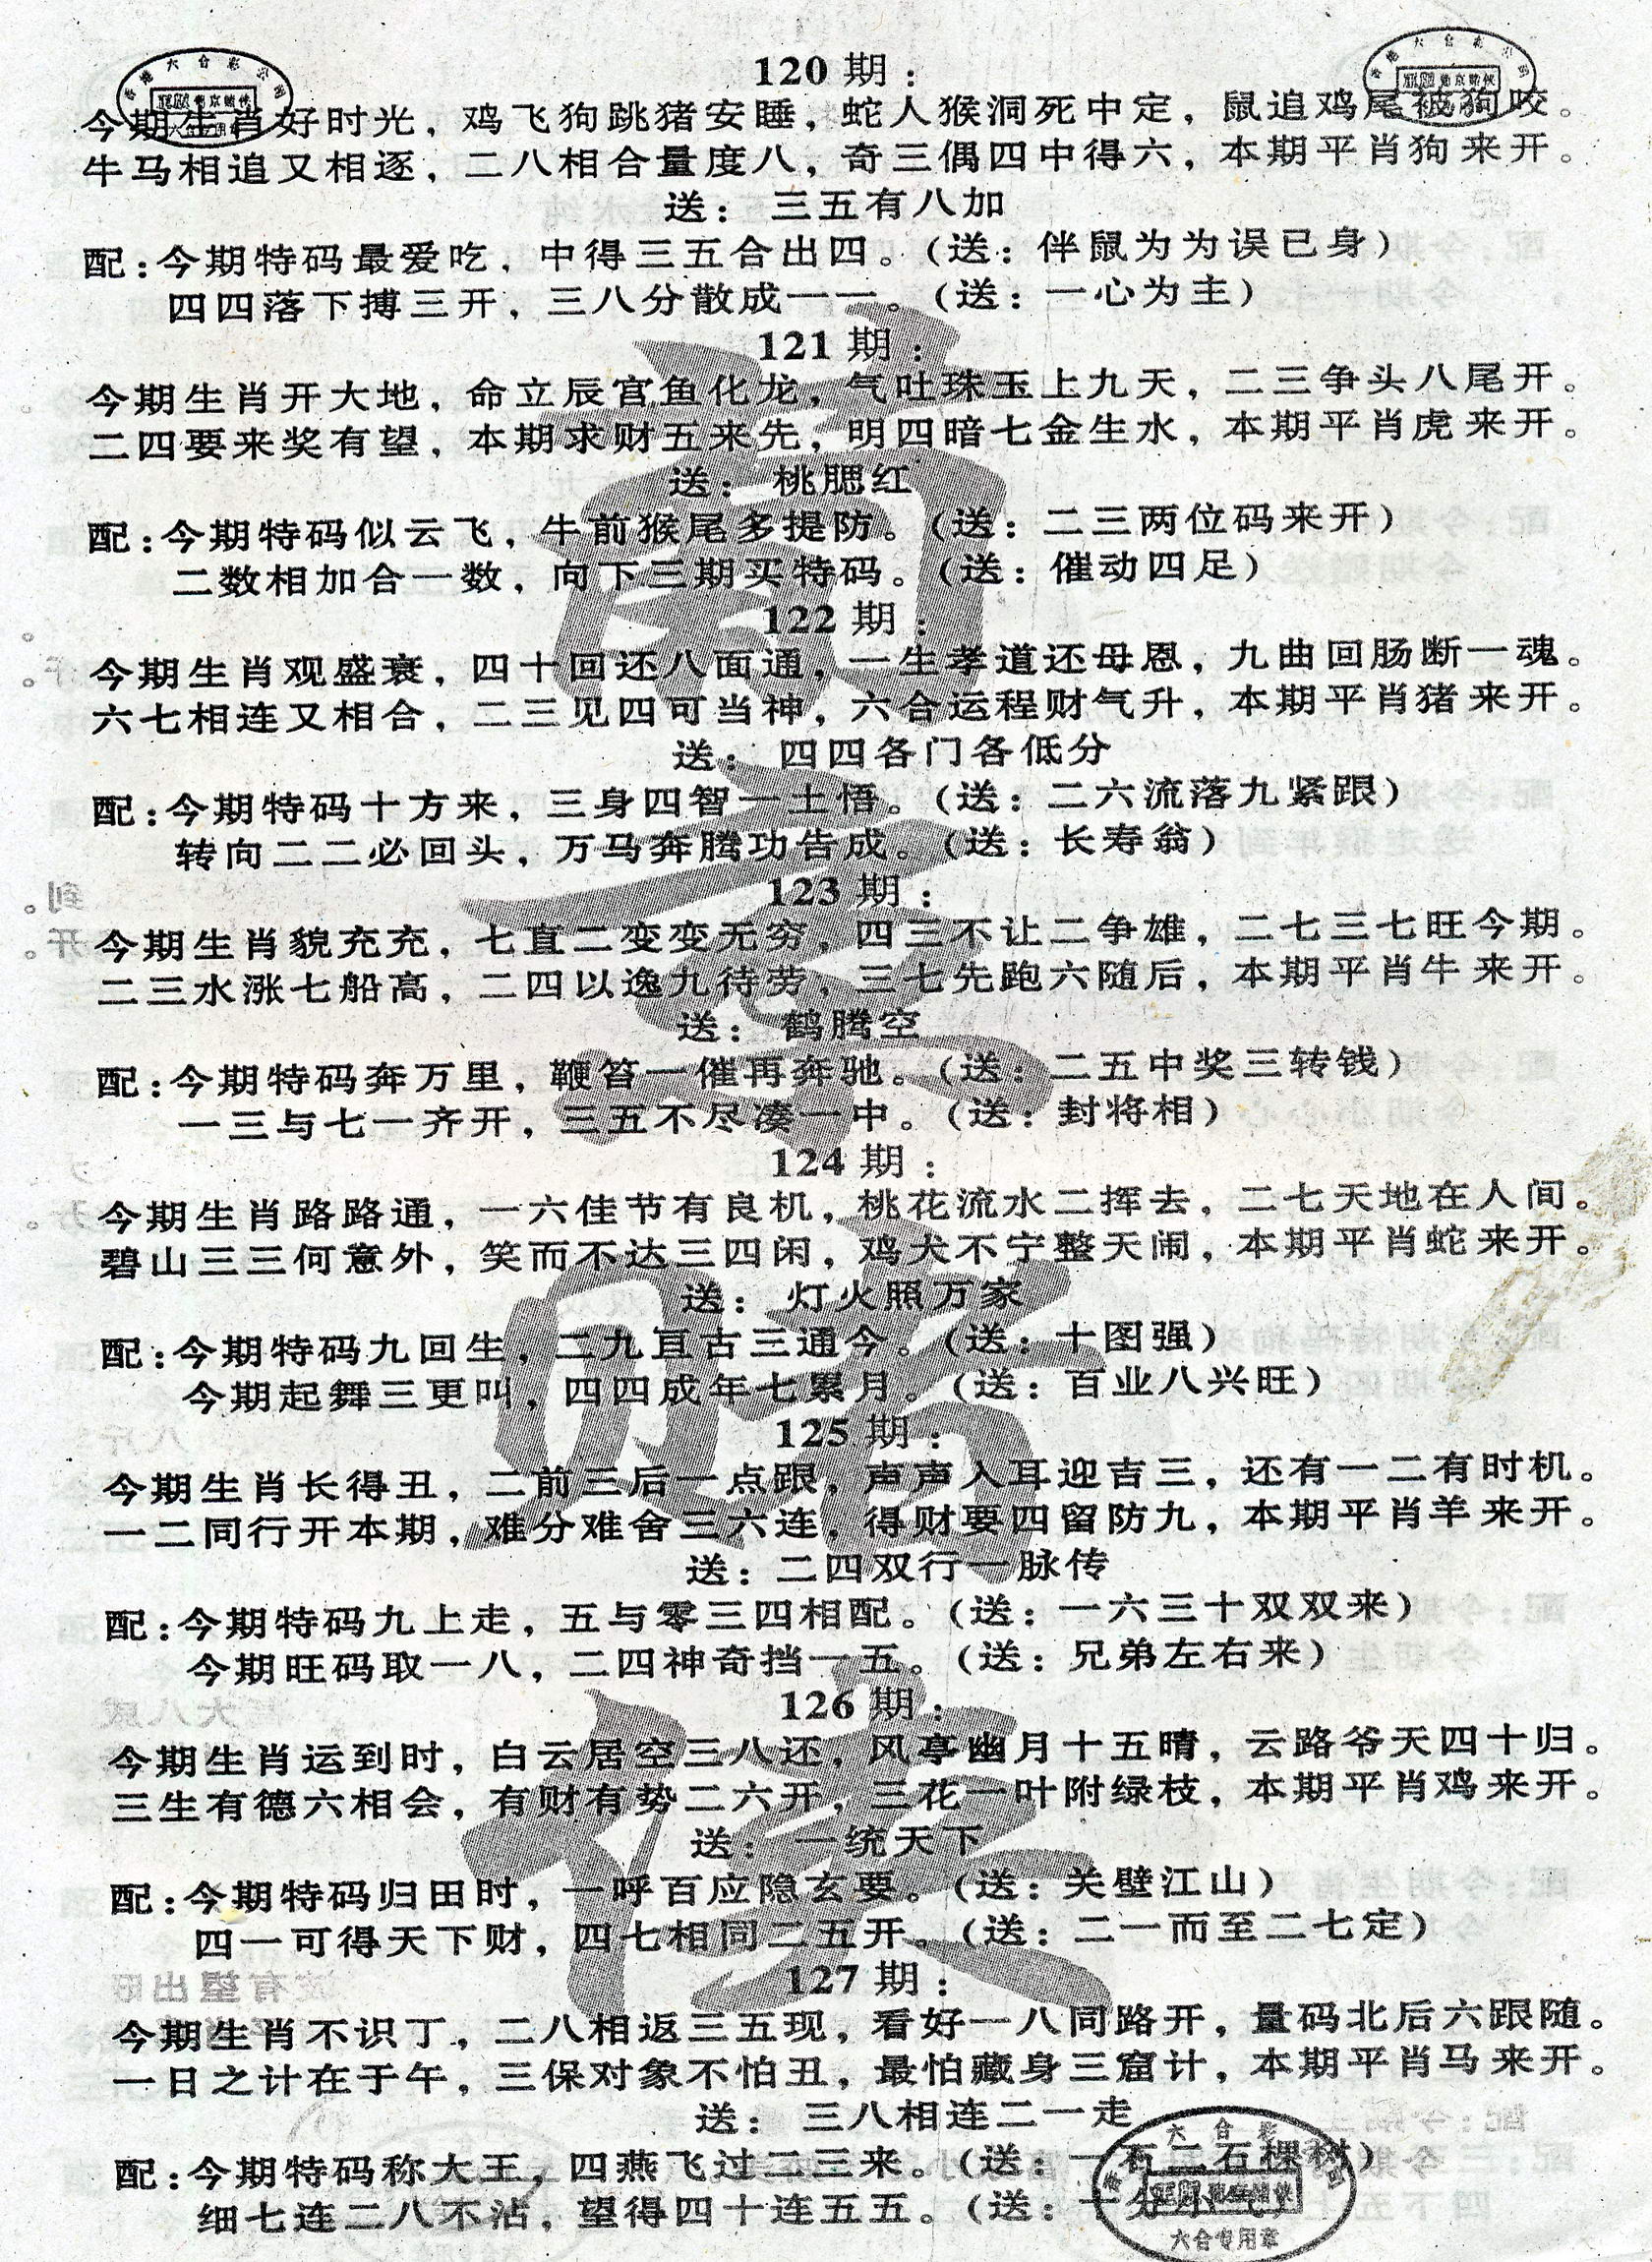 120期：
今期生肖好时光，鸡飞狗跳猪安睡，蛇人猴洞死中定，鼠追鸡尾被狗咬。
牛马相追又相逐，二八相合量度八，奇三偶四中得六，本期平肖狗来开。
送：三五有八加
配：今期特码最爱吃，中得三五合出四。（送：伴鼠为为误已身）
四四落下搏三开，三八分散成一一。（送：一心为主）
121期：
今期生肖开大地，命立辰宫鱼化龙，气吐珠玉上九天，二三争头八尾开。
二四要来奖有望，本期求财五来先，明四暗七金生水，本期平肖虎来开。
送：桃腮红
配：今期特码似云飞，牛前猴尾多提防。（送：二三两位码来开）
二数相加合一数，向下三期买特码。（送：催动四足）
122期：
今期生肖观盛衰，四十回还八面通，一生孝道还母恩，九曲回肠断一魂。
六七相连又相合，二三见四可当神，六合运程财气升，本期平肖猪来开。
送：四四各门各低分
配：今期特码十方来，三身四智一士悟。（送：二六流落九紧跟）
转向二二必回头，万马奔腾功告成。（送：长寿翁）
123期：
今期生肖貌充充，七直二变变无穷，四三不让二争雄，二七三七旺今期。
二三水涨七船高，二四以逸九待劳，三七先跑六随后，本期平肖牛来开。
送：鹤腾空
配：今期特码奔万里，鞭笞一催再奔驰。（送：二五中奖三转钱）
一三与七一齐开，三五不尽凑一中。（送：封将相）
124期：
今期生肖路路通，一六佳节有良机，桃花流水二挥去，二七天地在人间。
碧山三三何意外，笑而不达三四闲，鸡犬不宁整天闹，本期平肖蛇来开。
送：灯火照万家
配：今期特码九回生，二九亘古三通今。（送：十图强）
今期起舞三更叫，四四成年七累月。（送：百业八兴旺）
125期：
今期生肖长得丑，二前三后一点跟，声声入耳迎吉三，还有一二有时机。
一二同行开本期，难分难舍三六连，得财要四留防九，本期平肖羊来开。
送：二四双行一脉传
配：今期特码九上走，五与零三四相配。（送：一六三十双双来）
今期旺码取一八，二四神奇挡一五。（送：兄弟左右来）
126期：
今期生肖运到时，白云居空三八还，风亭幽月十五晴，云路爷天四十归。
三生有德六相会，有财有势二六开，三花一叶附绿枝，本期平肖鸡来开。
送：一统天下
配：今期特码归田时，一呼百应隐玄要。（送：关壁江山）
四一可得天下财，四七相同二五开。（送：二一而至二七定）
127期：
今期生肖不识丁，二八相返三五现，看好一八同路开，量码北后六跟随。
一日之计在于午，三保对象不怕丑，最怕藏身三窟计，本期平肖马来开。
送：三八相连二一走
配：今期特码称大王，四燕飞过二三来。（送：一石二石棵树）
细七连二八不沾，望得四十连五五。（送：十分小气）
六合专用章